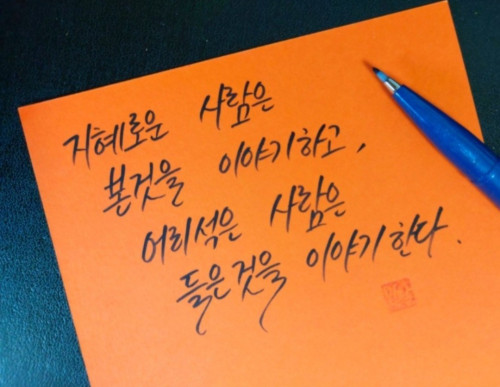 지혜로운 사람은
본것을 이야기하고,
어리석은 사람은
들은것을 이야기한다.